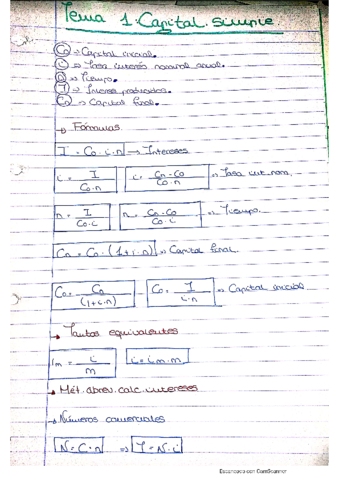 Tema 1: Capital simple
Co => Capital inicial.
i => Tasa interés nominal anual.
n => Tiempo.
I => Interes producidos.
Cn => Capital final.
→ Fórmulas
I = Co · i · n → Intereses
i = I / Co · n   i = Cn - Co / Co · n => Tasa int. nom.
n = I / Co · i   n = Cn - Co / Co · i => Tiempo.
Cn = Co · (1 + i · n) => Capital final.
Co = Cn / (1 + i · n)   Co = I / i · n => Capital inicial
→ Tantos equivalentes
im = i / m   i = im · m
→ Mét. abrev. calc. intereses
→ Números comerciales
N = C · n => I = N · i
Escaneado con CamScanner